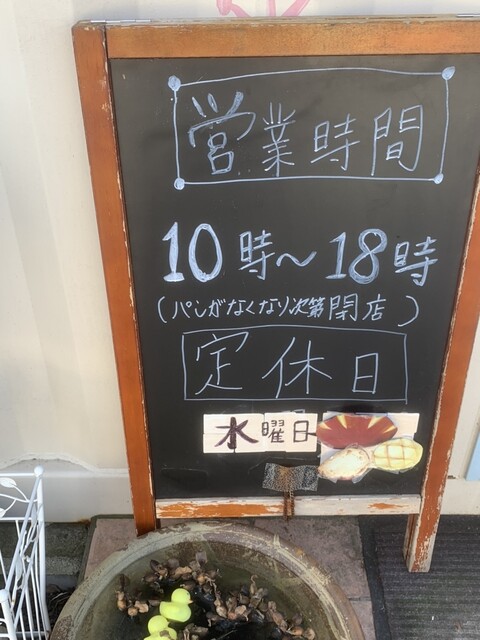 営業時間
10時～18時
(パンがなくなり次第閉店)
定休日
水曜日